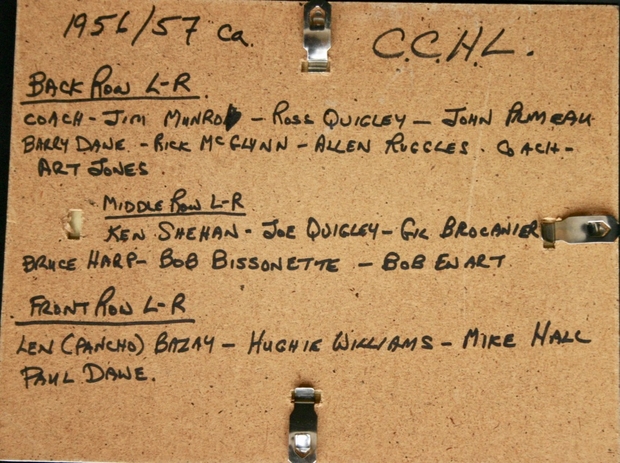 1956/57 ca.
C.C.H.L.
BACK ROW L-R
COACH - JIM MUNRO - ROSS QUIGLEY - JOHN PRIMEAU
BARRY DANE - RICK MCGLYNN - ALLEN RUGGLES. COACH -
ART JONES.
MIDDLE ROW L-R
KEN SHEHAN - JOE QUIGLEY - GIL BROCANIER
BRUCE HARP - BOB BISSONETTE - BOB ENART
FRONT ROW L-R
LEN (PANCHO) BAZAY - HUGHIE WILLIAMS - MIKE HALL
PAUL DAWE.